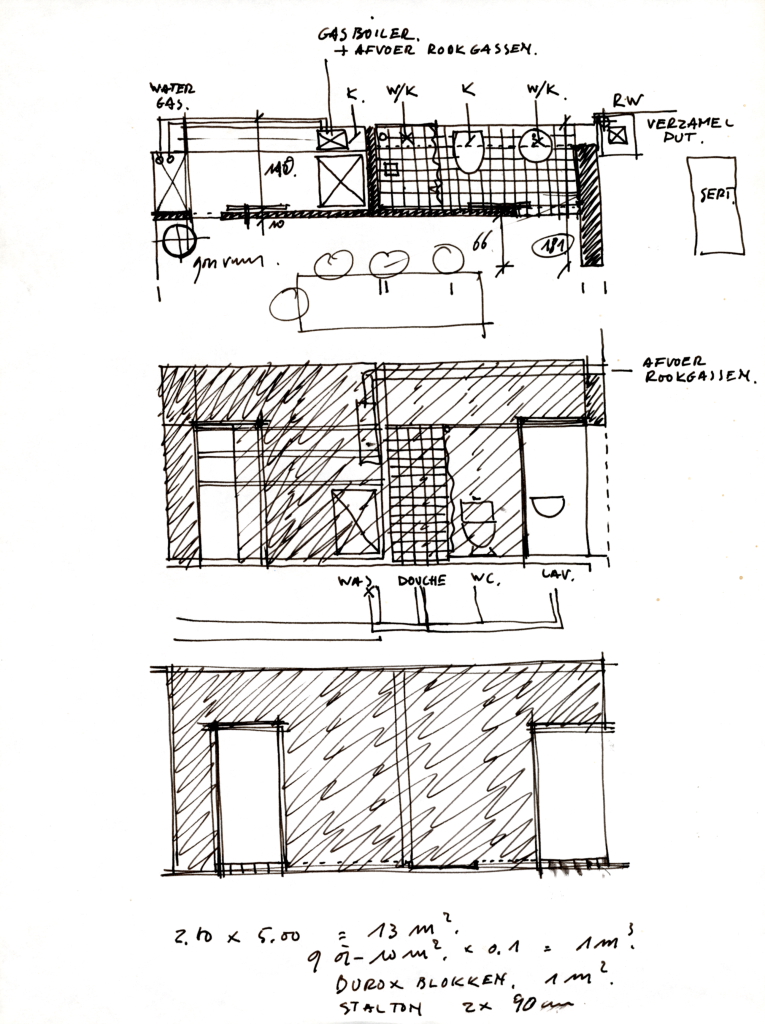 GASBOILER.
+ AFVOER ROOKGASSEN.
WATER
GAS.
K.
W/K
K
W/K.
RW
VERZAMEL
PUT.
SEPT.
140.
10
66
181
AFVOER
ROOKGASSEN.
WAS
DOUCHE
WC.
LAV.
= 13 m².
x 0.1 = 1m³.
DUROX BLOKKEN. 1m².
STALTON 2x 90cm